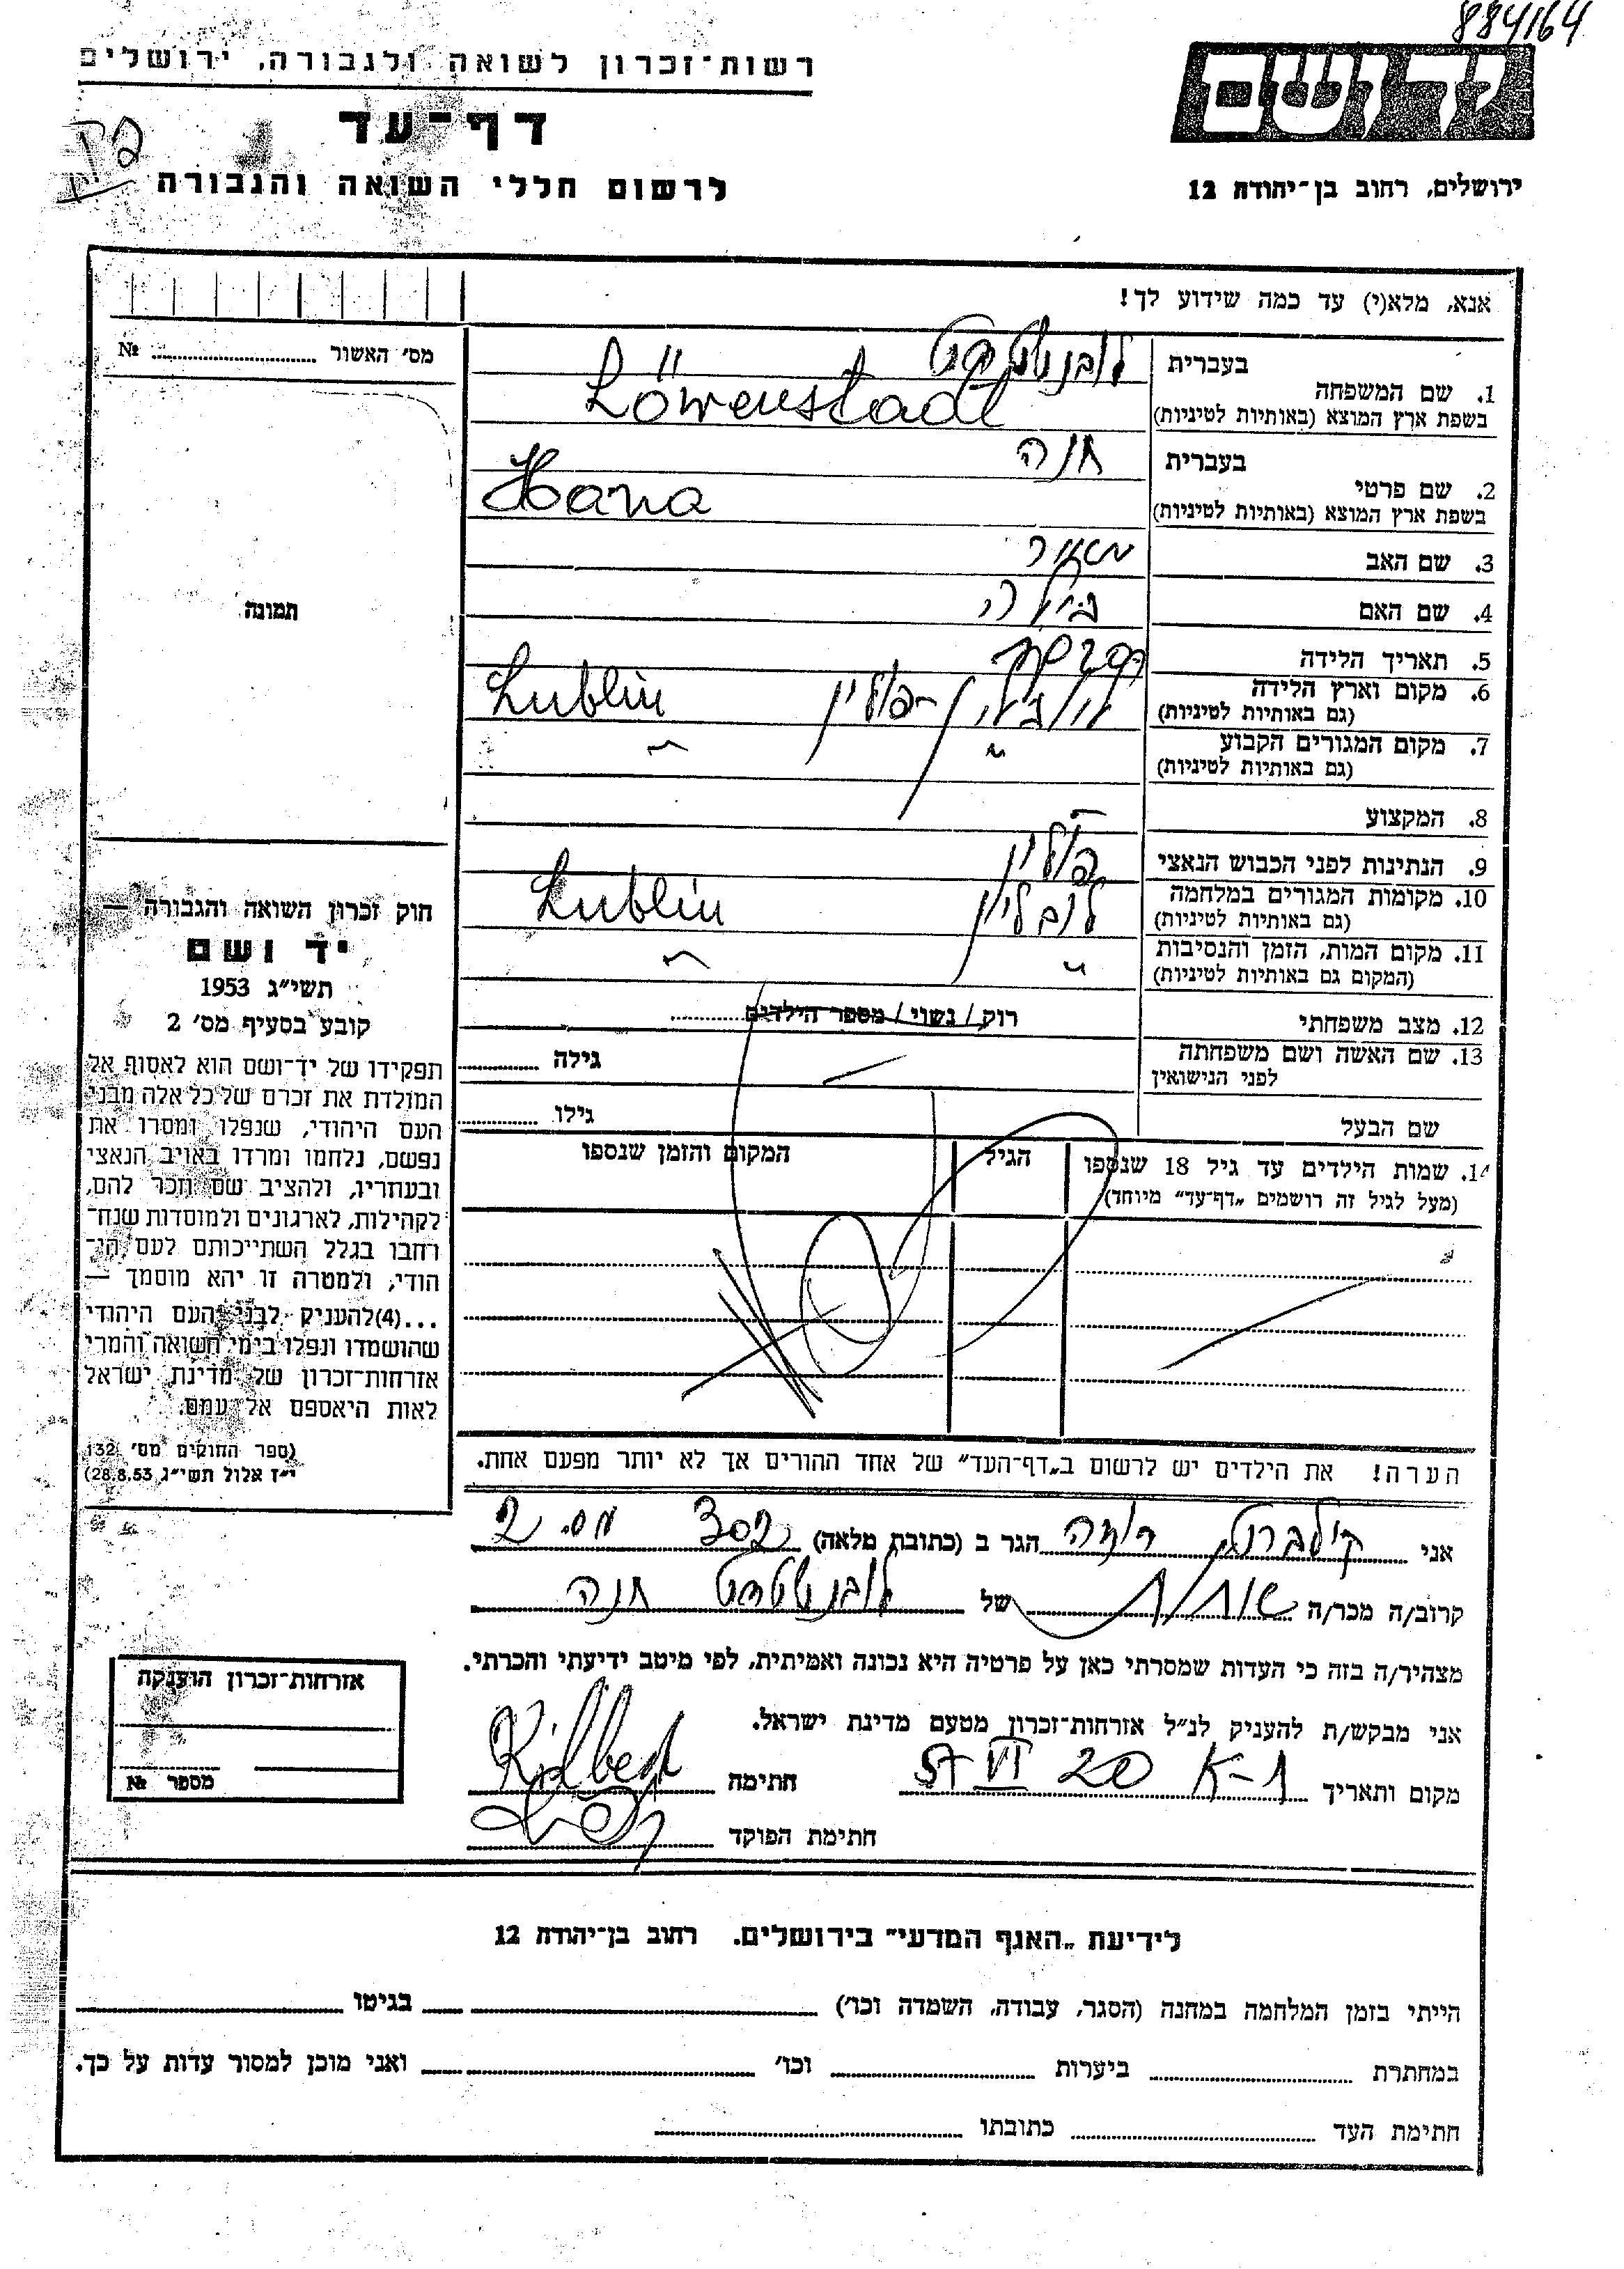 884164
רשות־זכרון לשואה ולגבורה, ירושלים
דף־עד
לרשום חללי השואה והגבורה
יד ושם
ירושלים, רחוב בן־יהודה 12
אנא, מלא(י) עד כמה שידוע לך!
מס' האשור № 
1. שם המשפחה בעברית לובנשטדט
בשפת ארץ המוצא (באותיות לטיניות) Löwenstadt
2. שם פרטי בעברית חנה
בשפת ארץ המוצא (באותיות לטיניות) Hana
3. שם האב מאיר
4. שם האם
5. תאריך הלידה
6. מקום וארץ הלידה לובלין - פולין Lublin
(גם באותיות לטיניות)
7. מקום המגורים הקבוע " "
(גם באותיות לטיניות)
8. המקצוע
9. הנתינות לפני הכבוש הנאצי פולין
10. מקומות המגורים במלחמה לובלין Lublin
(גם באותיות לטיניות)
11. מקום המות, הזמן והנסיבות " "
(המקום גם באותיות לטיניות)
12. מצב משפחתי רוק / נשוי / מספר הילדים
13. שם האשה ושם משפחתה גילה
לפני הנישואין
שם הבעל גילו
14. שמות הילדים עד גיל 18 שנספו הגיל המקום והזמן שנספו
(מעל לגיל זה רושמים „דף־עד" מיוחד)
הערה! את הילדים יש לרשום ב„דף־העד" של אחד ההורים אך לא יותר מפעם אחת.
תמונה
חוק זכרון השואה והגבורה —
יד ושם
תשי"ג 1953
קובע בסעיף מס' 2
תפקידו של יד־ושם הוא לאסוף אל
המולדת את זכרם של כל אלה מבני
העם היהודי, שנפלו ומסרו את
נפשם, נלחמו ומרדו באויב הנאצי
ובעוזריו, ולהציב שם וזכר להם,
לקהילות, לארגונים ולמוסדות שנח־
רחבו בגלל השתייכותם לעם הי־
הודי, ולמטרה זו יהא מוסמך —
...(4)להעניק לבני העם היהודי
שהושמדו ונפלו בימי השואה והמרי
אזרחות־זכרון של מדינת ישראל
לאות היאספם אל עמם.
(ספר החוקים מס' 132,
י"ז אלול תשי"ג 28.8.53)
אני קילברט הגר ב (כתובת מלאה) 302 מס. 2
קרוב/ה מכר/ה של לובנשטדט חנה
מצהיר/ה בזה כי העדות שמסרתי כאן על פרטיה היא נכונה ואמיתית, לפי מיטב ידיעתי והכרתי.
אני מבקש/ת להעניק לנ"ל אזרחות־זכרון מטעם מדינת ישראל.
מקום ותאריך K-1 20 VI 57 חתימה Kilbert
חתימת הפוקד
אזרחות־זכרון הוענקה
מספר №
לידיעת „האגף המדעי" בירושלים. רחוב בן־יהודה 12
הייתי בזמן המלחמה במחנה (הסגר, עבודה, השמדה וכו') בגיטו
במחתרת ביערות וכו' ואני מוכן למסור עדות על כך.
חתימת העד כתובתו